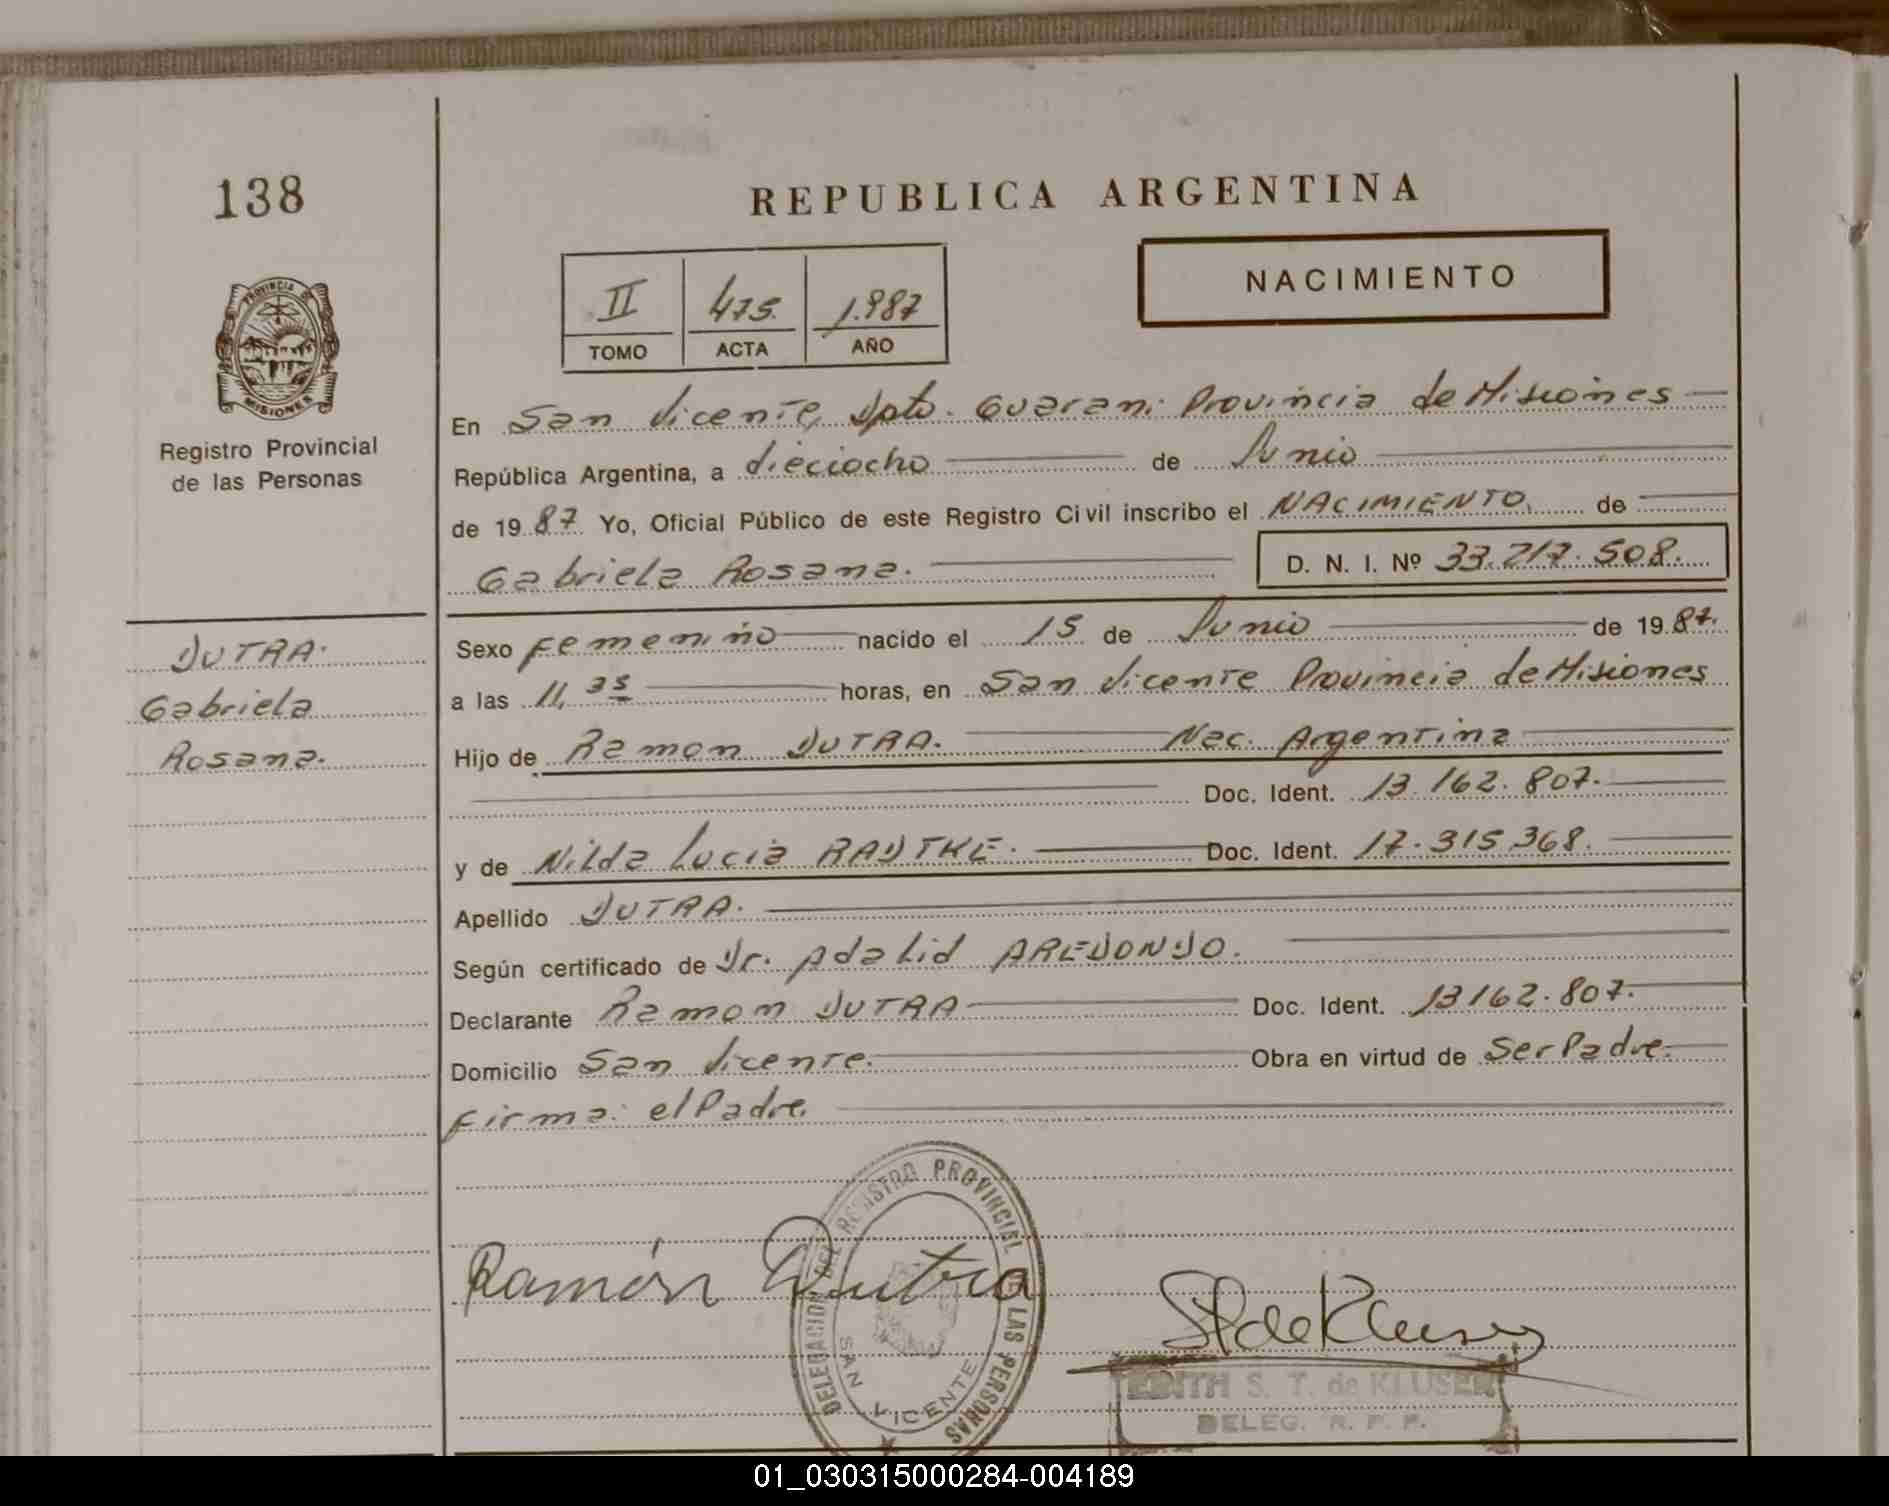 138
REPUBLICA ARGENTINA
II 475. 1.987
TOMO ACTA AÑO
NACIMIENTO
PROVINCIA DE
MISIONES
Registro Provincial
de las Personas
En San Vicente, Dpto. Guarani Provincia de Misiones
República Argentina, a dieciocho de Junio
de 19 87 Yo, Oficial Público de este Registro Civil inscribo el NACIMIENTO, de
Gabriela Rosana. D. N. I. Nº 33.217.508.
DUTRA.
Gabriela
Rosana.
Sexo Femenino nacido el 15 de Junio de 19 87.
a las 11,35 horas, en San Vicente Provincia de Misiones
Hijo de Ramon DUTRA. Nac. Argentina
Doc. Ident. 13.162.807.
y de Nilda Lucia RADTKE. Doc. Ident. 17.315.368.
Apellido DUTRA.
Según certificado de Dr. Adalid AREDONDO.
Declarante Ramon DUTRA Doc. Ident. 13162.807.
Domicilio San Vicente. Obra en virtud de Ser Padre.
Firma: el Padre.
Ramón Dutra
DELEGACION DEL REGISTRO PROVINCIAL DE LAS PERSONAS
SAN VICENTE
EDITH S. T. de KLUSER
DELEG. R. P. P.
01_030315000284-004189